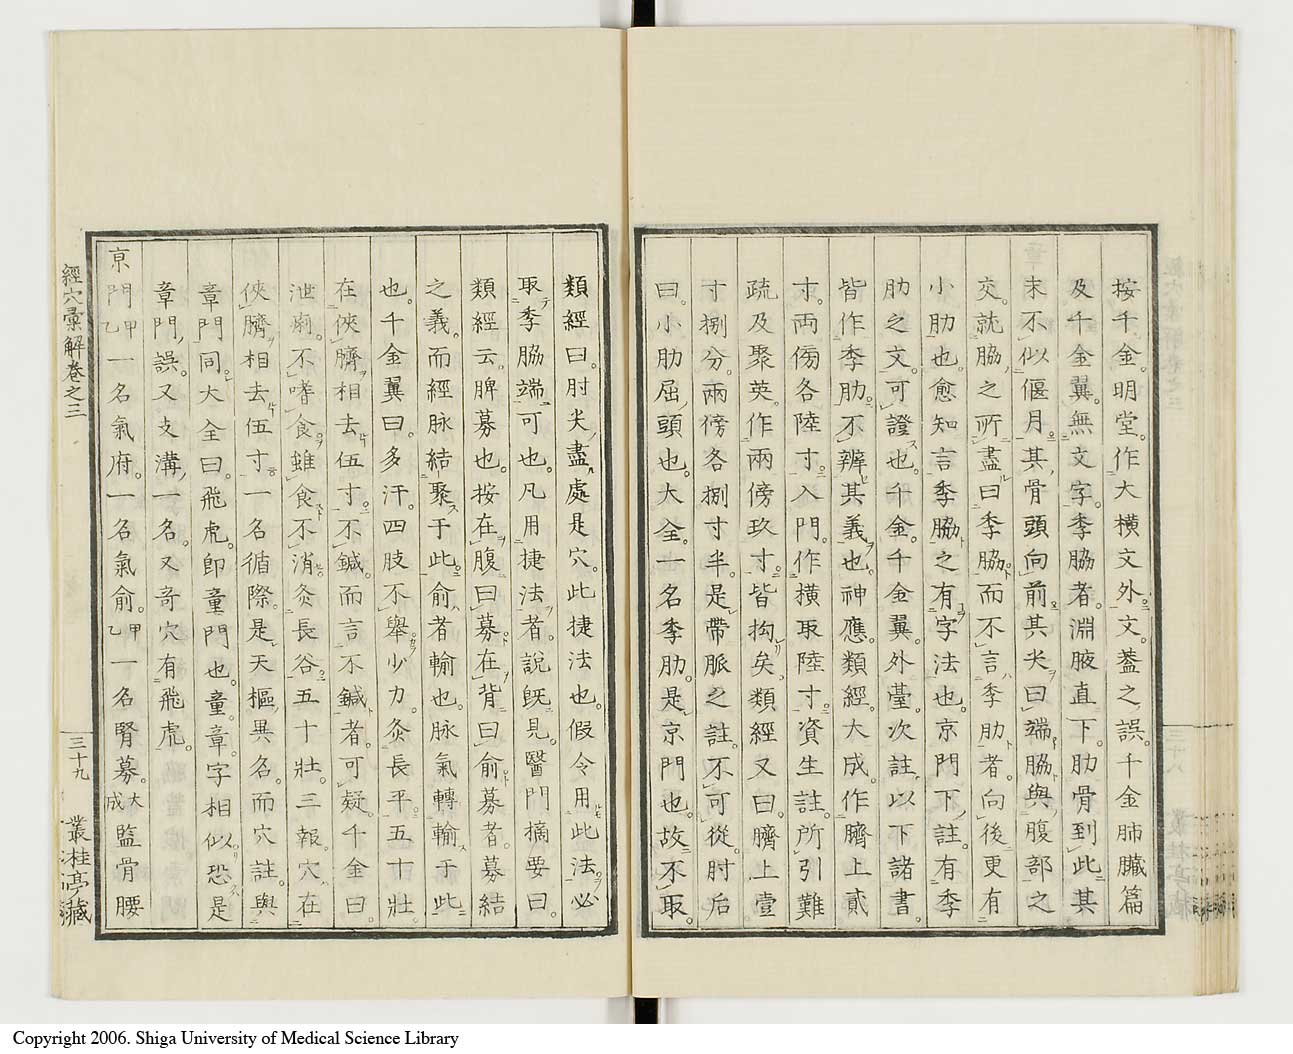 按千金明堂。作大横文外文。蓋之誤。千金肺臟篇
及千金翼。無文字。季脇者。淵腋直下。肋骨到此。其
末不似偃月。其骨頭向前。其尖曰端。脇與腹部之
交。就脇之所盡曰季脇。而不言季肋者。向後更有
小肋也。愈知言季脇之有字法也。京門下註。有季
肋之文。可證也。千金。千金翼。外臺。次註。以下諸書。
皆作季肋。不辨其義也。神應。類經。大成。作臍上貳
寸。両傍各陸寸。入門。作横取陸寸。資生註。所引難
疏及聚英。作両傍玖寸。皆拘矣。類經又曰。臍上壹
寸捌分。兩傍各捌寸半。是帶脈之註。不可從。肘后
曰。小肋屈頭也。大全。一名季肋。是京門也。故不取。
類經曰。肘尖盡處是穴。此捷法也。假令用此法。必
取季脇端可也。凡用捷法者。說既見。醫門摘要曰。
類經云。脾募也。按在腹曰募。在背曰俞。募者。募結
之義。而經脉結聚于此。俞者輸也。脉氣轉輸于此
也。千金翼曰。多汗。四肢不舉少力。灸長平。五十壯。
在俠臍相去伍寸。不鍼。而言不鍼者。可疑。千金曰。
泄痢。不嗜食。雖食不消。灸長谷。五十壯。三報。穴在
俠臍相去伍寸。一名循際。是天樞異名。而穴註與
章門同。大全曰。飛虎。即童門也。童章字相似。恐是
章門誤。又支溝一名。又奇穴有飛虎。
京門甲乙一名氣府。一名氣俞。甲乙一名腎募。大成監骨腰
經穴彙解卷之三
三十九
叢桂亭藏
Copyright 2006. Shiga University of Medical Science Library